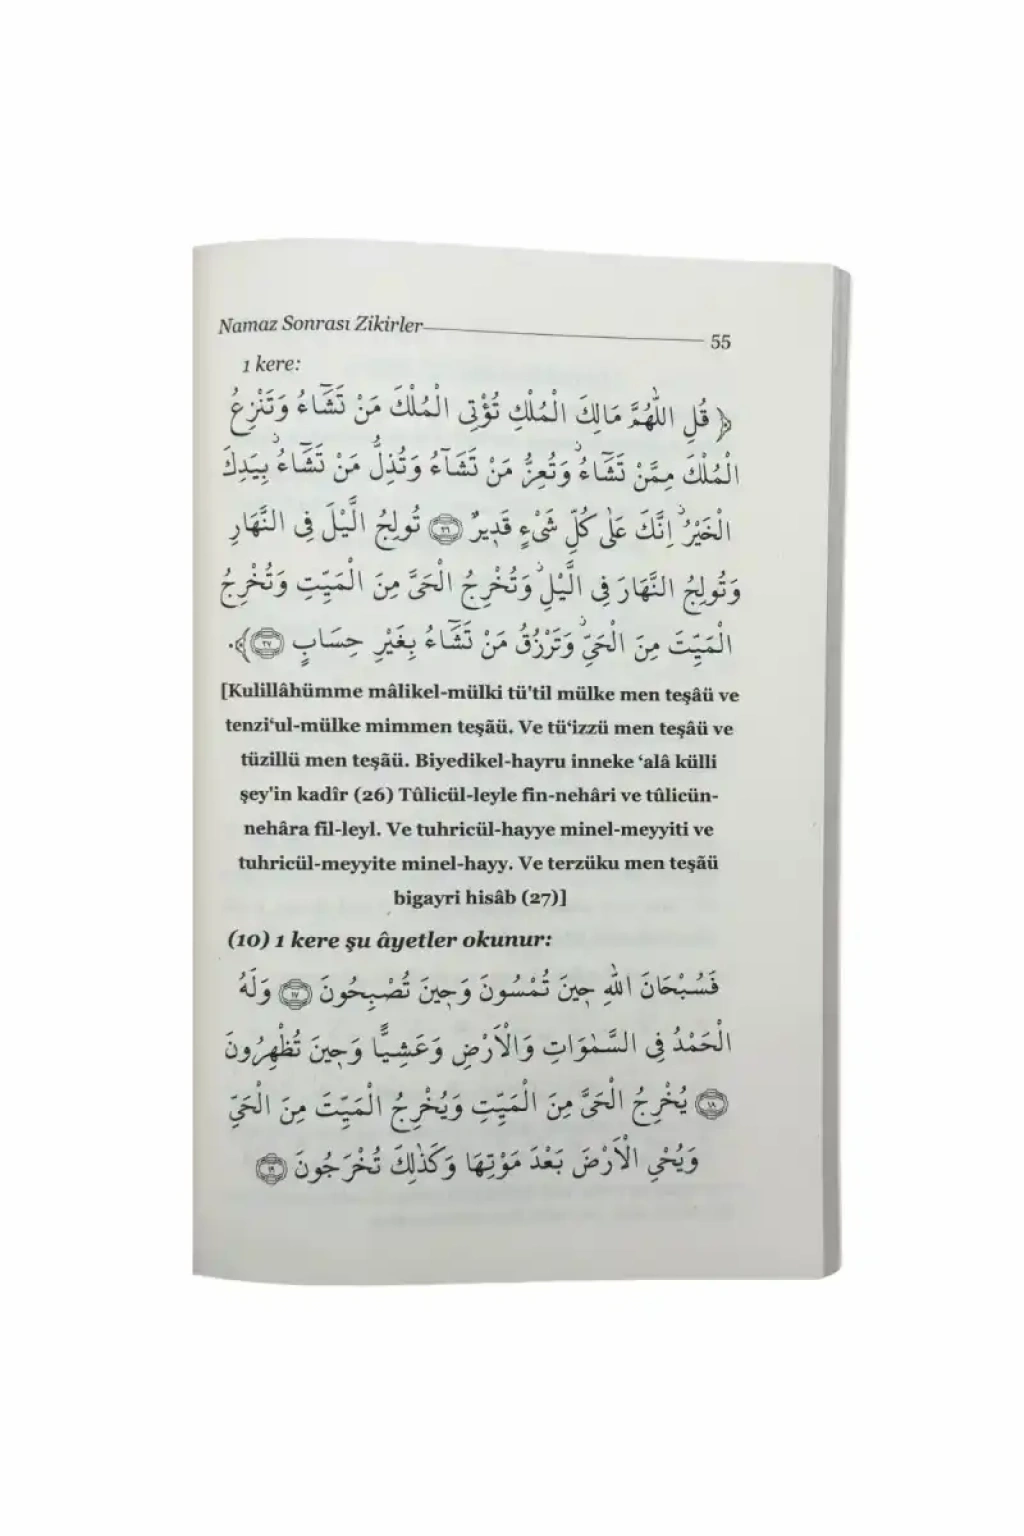 Namaz Sonrası Zikirler 55
1 kere:
﴿ قُلِ اللّٰهُمَّ مَالِكَ الْمُلْكِ تُؤْتِى الْمُلْكَ مَنْ تَشَٓاءُ وَتَنْزِعُ
الْمُلْكَ مِمَّنْ تَشَٓاءُۘ وَتُعِزُّ مَنْ تَشَٓاءُ وَتُذِلُّ مَنْ تَشَٓاءُۜ بِيَدِكَ
الْخَيْرُۜ اِنَّكَ عَلٰى كُلِّ شَىْءٍ قَد۪يرٌ ﴿٢٦﴾ تُولِجُ الَّيْلَ فِى النَّهَارِ
وَتُولِجُ النَّهَارَ فِى الَّيْلِۘ وَتُخْرِجُ الْحَىَّ مِنَ الْمَيِّتِ وَتُخْرِجُ
الْمَيِّتَ مِنَ الْحَىِّۘ وَتَرْزُقُ مَنْ تَشَٓاءُ بِغَيْرِ حِسَابٍ ﴿٢٧﴾ ﴾.
[Kulillâhümme mâlikel-mülki tü'til mülke men teşâü ve
tenzi‘ul-mülke mimmen teşâü. Ve tü‘izzü men teşâü ve
tüzillü men teşâü. Biyedikel-hayru inneke ‘alâ külli
şey'in kadîr (26) Tûlicül-leyle fin-nehâri ve tûlicün-
nehâra fil-leyl. Ve tuhricül-hayye minel-meyyiti ve
tuhricül-meyyite minel-hayy. Ve terzüku men teşâü
bigayri hisâb (27)]
(10) 1 kere şu âyetler okunur:
فَسُبْحَانَ اللّٰهِ ح۪ينَ تُمْسُونَ وَح۪ينَ تُصْبِحُونَ ﴿١٧﴾ وَلَهُ
الْحَمْدُ فِى السَّمٰوَاتِ وَالْاَرْضِ وَعَشِيًّا وَح۪ينَ تُظْهِرُونَ
﴿١٨﴾ يُخْرِجُ الْحَىَّ مِنَ الْمَيِّتِ وَيُخْرِجُ الْمَيِّتَ مِنَ الْحَىِّ
وَيُحْىِ الْاَرْضَ بَعْدَ مَوْتِهَا وَكَذٰلِكَ تُخْرَجُونَ ﴿١٩﴾